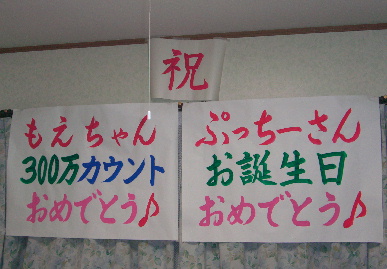 祝
もえちゃん
300万カウント
おめでとう♪
ぷっちーさん
お誕生日
おめでとう♪